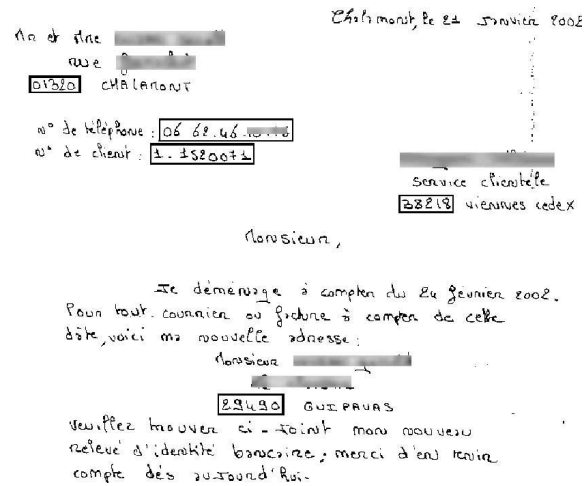 Chalamont, le 21 Janvier 2002
Mr et Mme
rue
01320 CHALAMONT
n° de téléphone : 06 62.46.
n° de client : 1.1520071
service clientèle
38218 viennes cedex
Monsieur,
Je déménage à compter du 24 février 2002.
Pour tout courrier ou facture à compter de cette
date, voici ma nouvelle adresse :
Monsieur
29490 GUIPAVAS
veuillez trouver ci-Joint mon nouveau
relevé d'identité bancaire, merci d'en tenir
compte dès aujourd'hui.